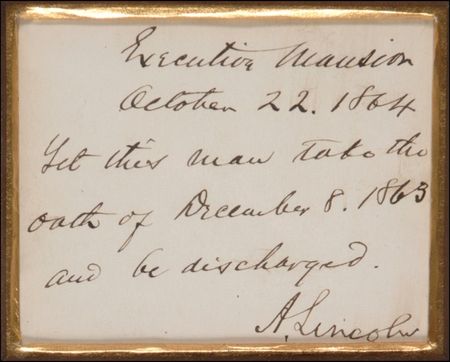 Executive Mansion
October 22. 1864
Let this man take the
oath of December 8. 1863
and be discharged.
A. Lincoln